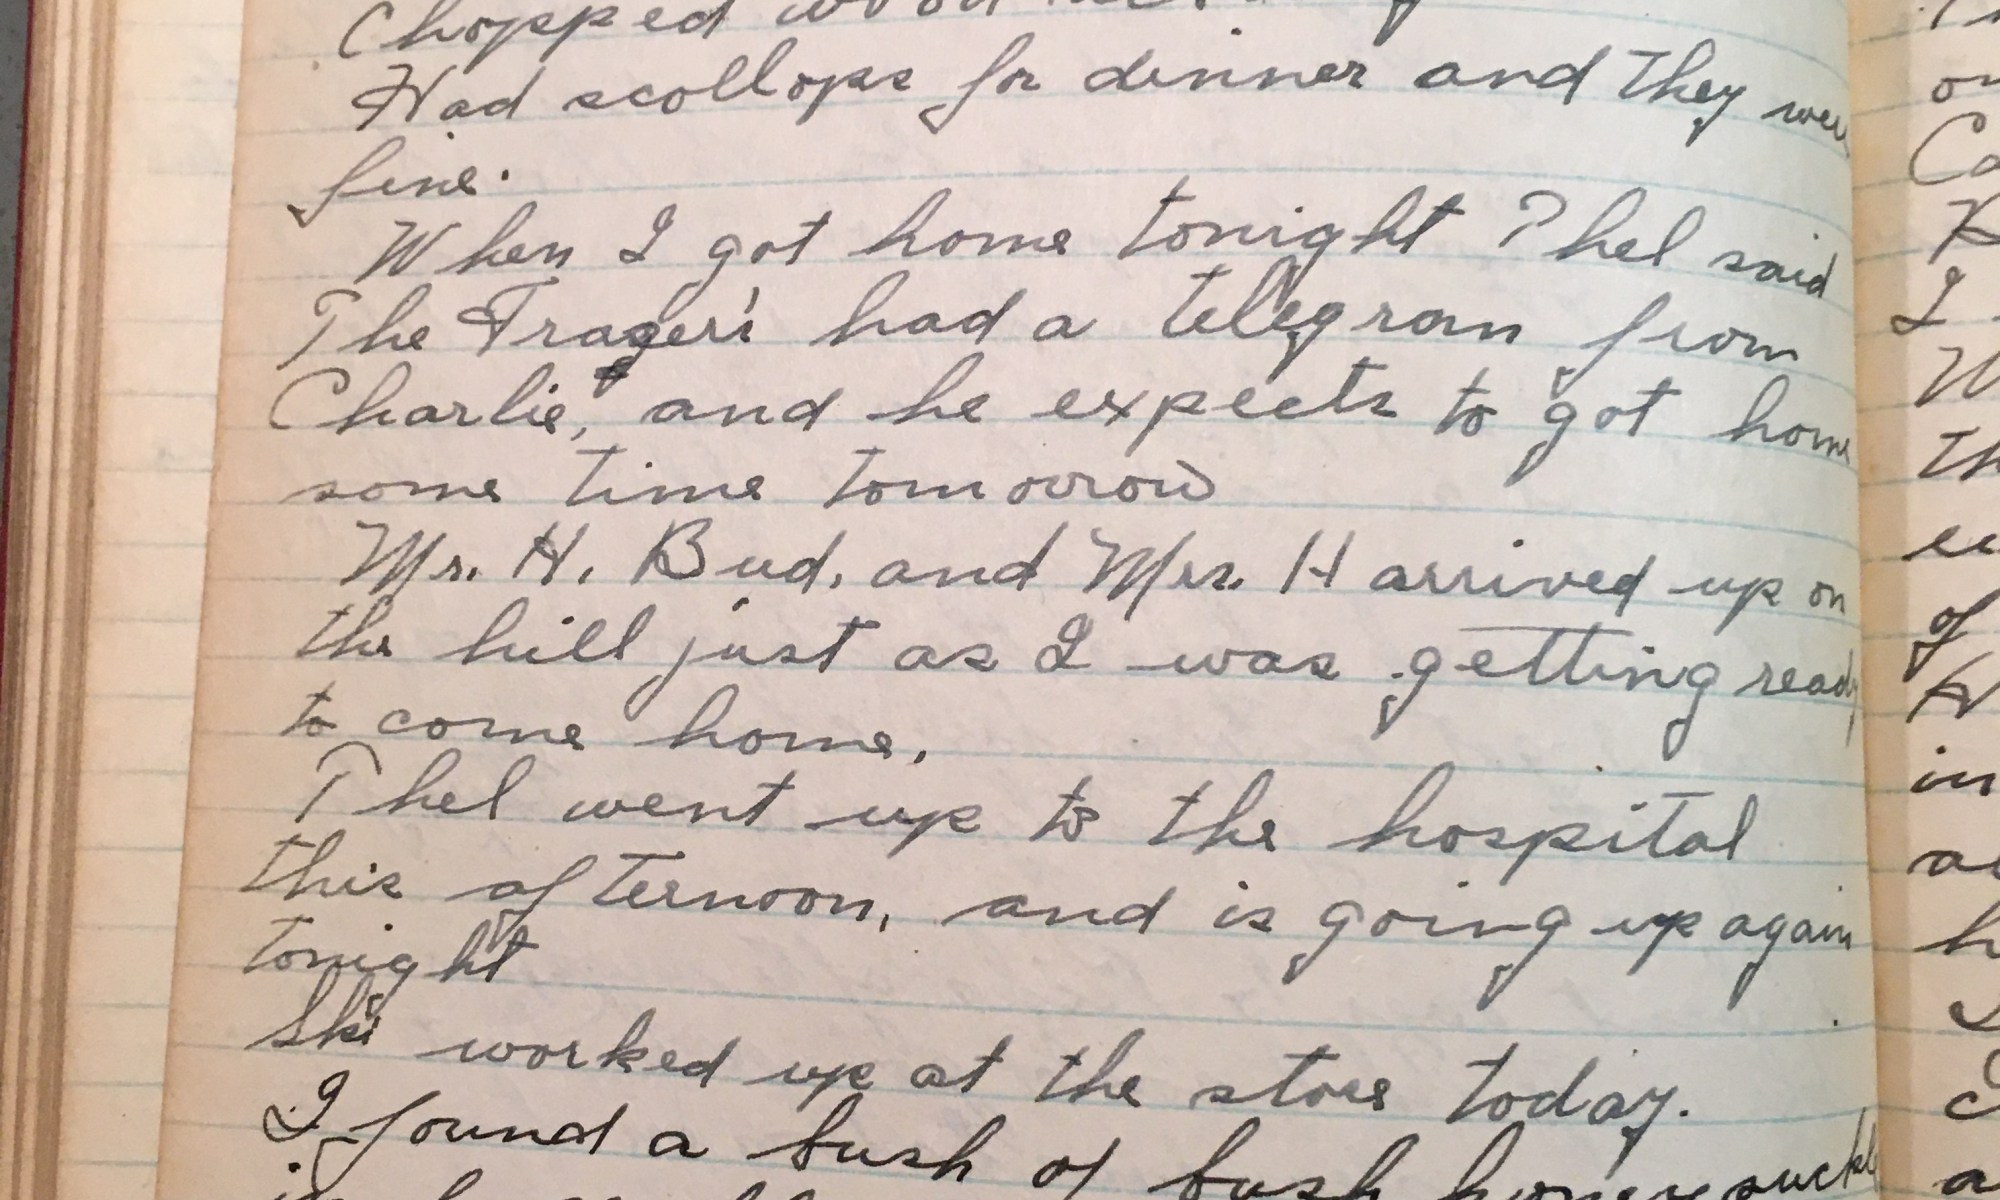 Chopped wood
Had scollops for dinner and they were
fine.
When I got home tonight Phel said
The Frager's had a telegram from
Charlie, and he expects to got home
some time tomorrow
Mr. H. Bud. and Mrs. H arrived up on
the hill just as I was getting ready
to come home.
Phel went up to the hospital
this afternoon, and is going up again
tonight
Ski worked up at the store today.
I found a bush of bush honeysuckle